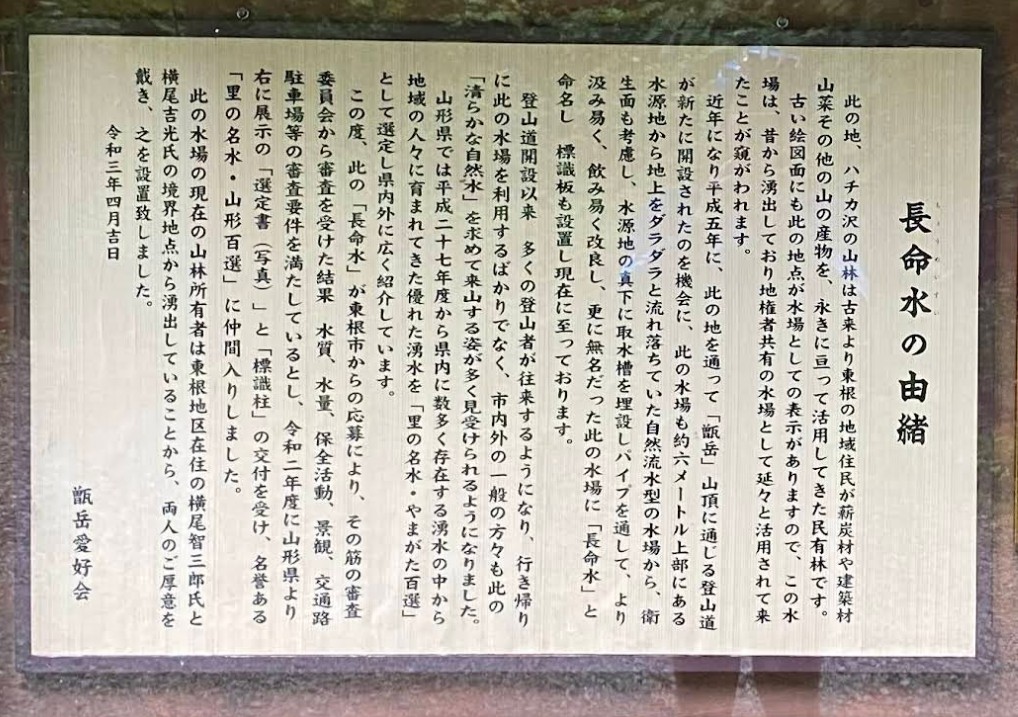 長命水の由緒
ちょうめいすい
此の地、ハチカ沢の山林は古来より東根の地域住民が薪炭材や建築材
山菜その他の山の産物を、永きに亘って活用してきた民有林です。
古い絵図面にも此の地点が水場としての表示がありますので、この水
場は、昔から湧出しており地権者共有の水場として延々と活用されて来
たことが窺がわれます。
近年になり平成五年に、此の地を通って「甑岳」山頂に通じる登山道
が新たに開設されたのを機会に、此の水場も約六メートル上部にある
水源地から地上をダラダラと流れ落ちていた自然流水型の水場から、衛
生面も考慮し、水源地の真下に取水槽を埋設しパイプを通して、より
汲み易く、飲み易く改良し、更に無名だった此の水場に「長命水」と
命名し 標識板も設置し現在に至っております。
登山道開設以来 多くの登山者が往来するようになり、行き帰り
に此の水場を利用するばかりでなく、市内外の一般の方々も此の
「清らかな自然水」を求めて来山する姿が多く見受けられるようになりました。
山形県では平成二十七年度から県内に数多く存在する湧水の中から
地域の人々に育まれてきた優れた湧水を「里の名水・やまがた百選」
として選定し県内外に広く紹介しています。
この度、此の「長命水」が東根市からの応募により、その筋の審査
委員会から審査を受けた結果 水質、水量、保全活動、景観、交通路
駐車場等の審査要件を満たしているとし、令和二年度に山形県より
右に展示の「選定書(写真)」と「標識柱」の交付を受け、名誉ある
「里の名水・山形百選」に仲間入りしました。
此の水場の現在の山林所有者は東根地区在住の横尾智三郎氏と
横尾吉光氏の境界地点から湧出していることから、両人のご厚意を
戴き、之を設置致しました。
令和三年四月吉日
甑岳愛好会